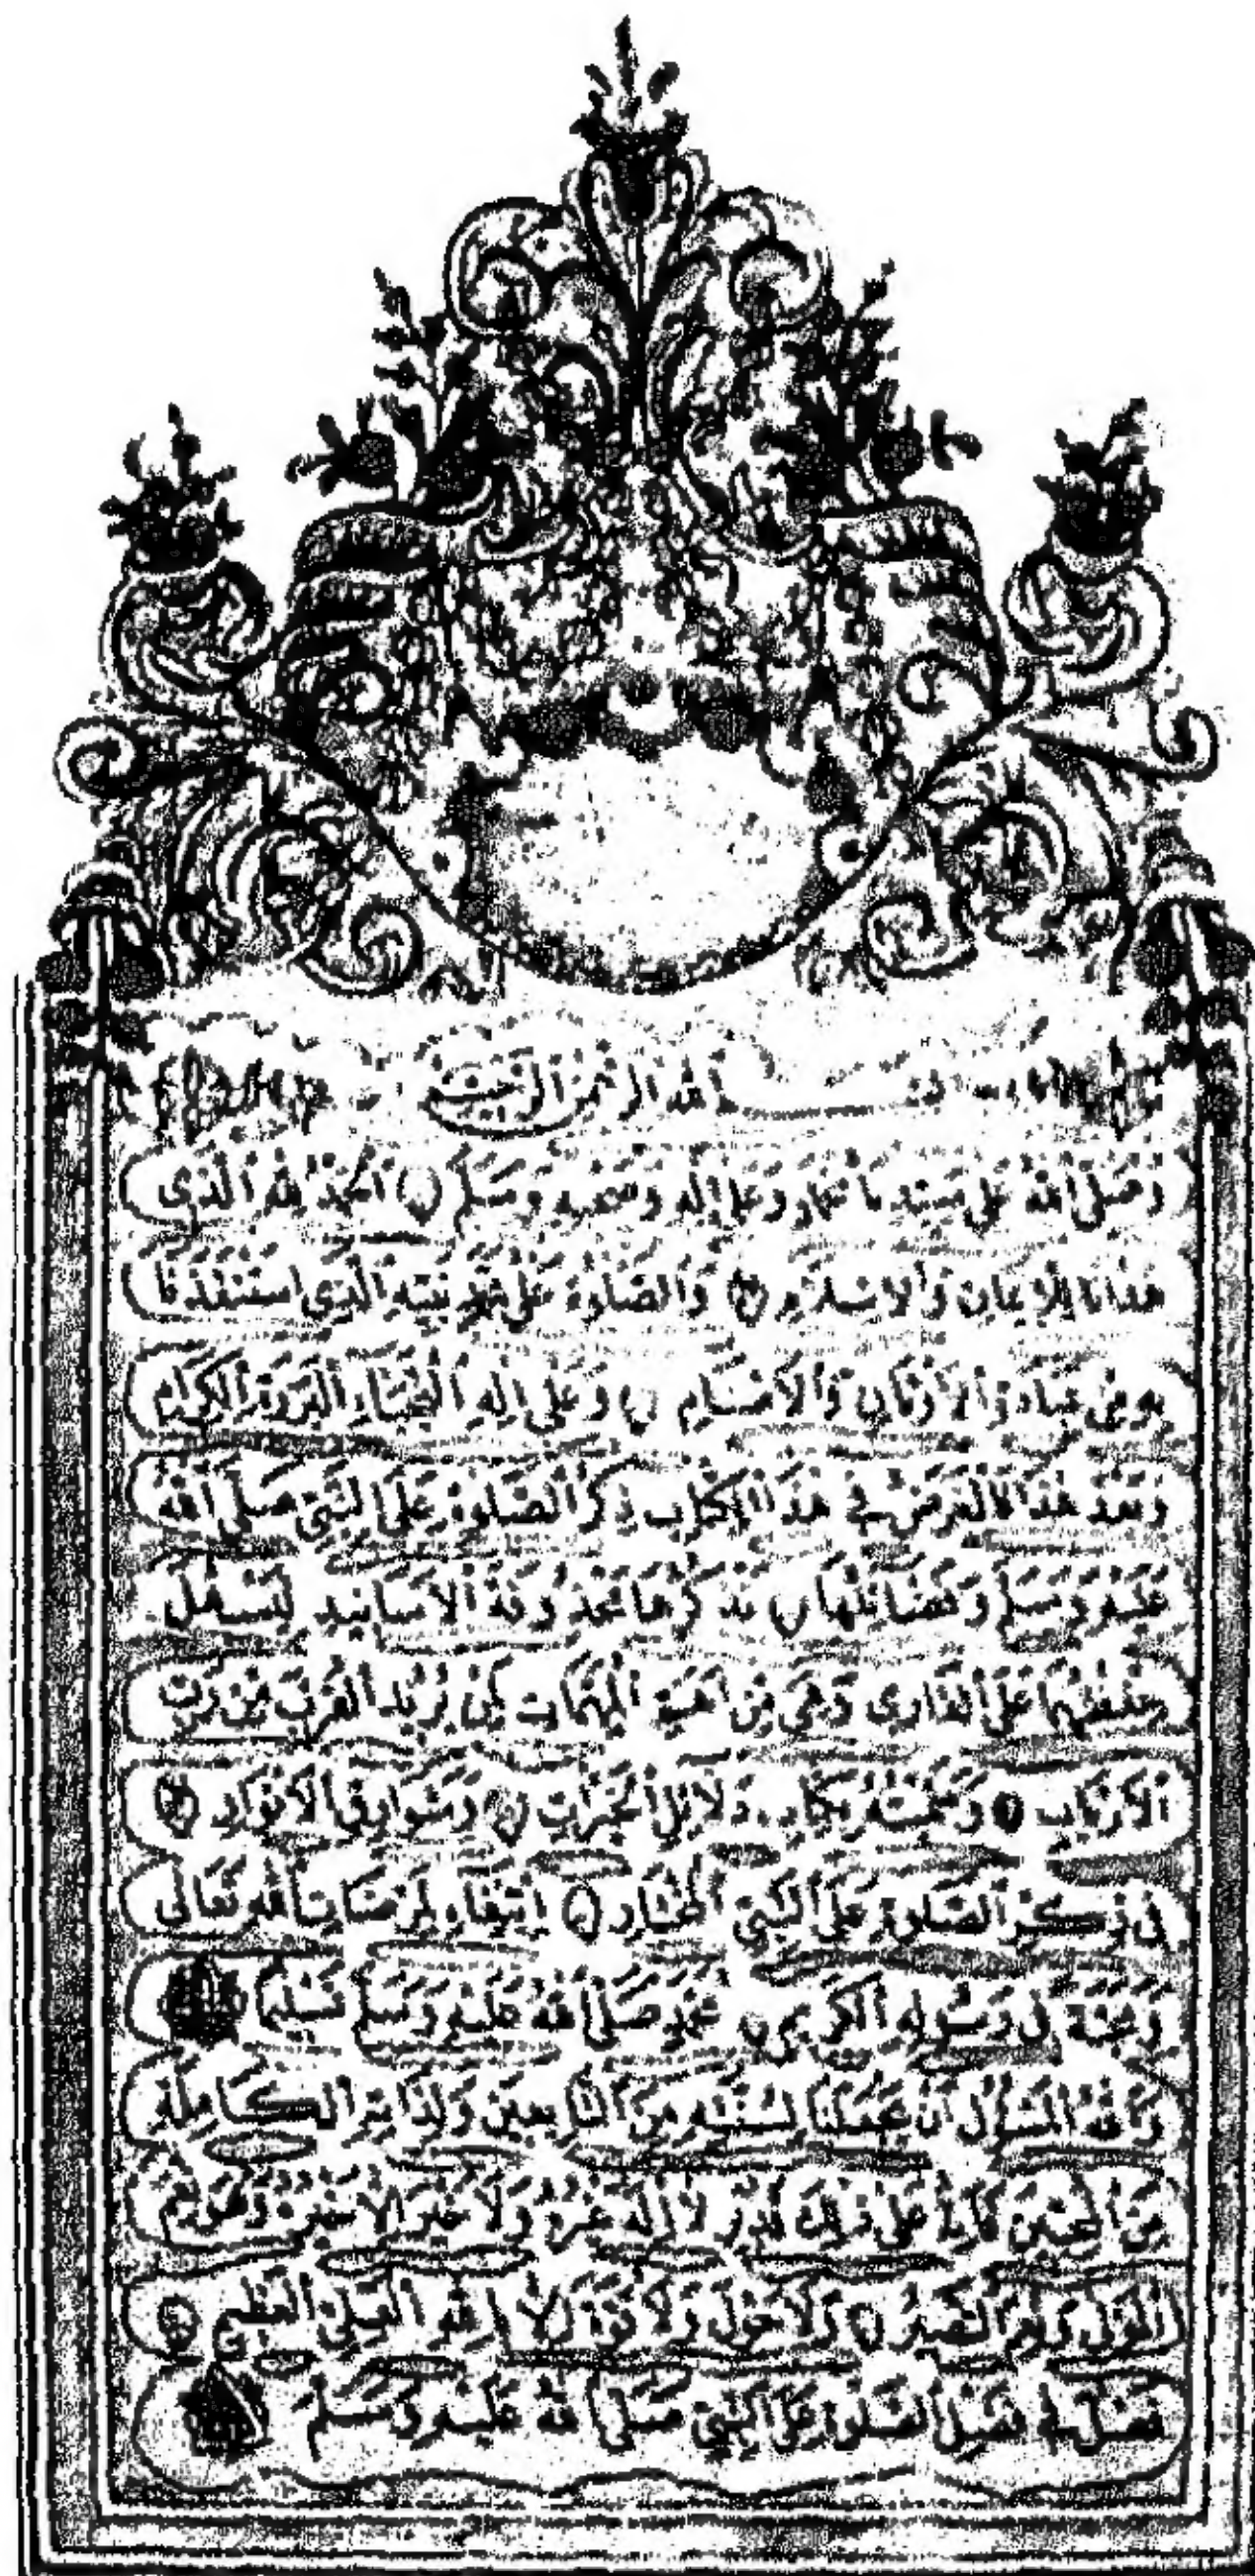 بسم الله الرحمن الرحيم
وصلى الله على سيدنا محمد وعلى اله وصحبه وسلم الحمد لله الذي
هدانا للايمان والاسلام والصلوة على محمد نبيه الذي استنقذنا
به من عبادة الاوثان والاصنام وعلى اله النجباء البررة الكرام
وبعد هذا فالغرض في هذا الكتاب ذكر الصلوة على النبي صلى الله
عليه وسلم وفضائلها نذكرها محذوفة الاسانيد ليسهل
حفظها على القاري وهي من اهم المهمات لمن يريد القرب من رب
الارباب وسميته بكتاب دلائل الخيرات وشوارق الانوار
في ذكر الصلوة على النبي المختار ابتغاء لمرضات الله تعالى
ومحبة في رسوله الكريم محمد صلى الله عليه وسلم تسليما
والله المسؤل ان يجعلنا لسنته من التابعين ولذاته الكاملة
من المحبين فانه على ذلك قدير لا اله غيره ولا خير الا خيره وهو نعم
المولى ونعم النصير ولا حول ولا قوة الا بالله العلي العظيم
فصل في فضل الصلوة على النبي صلى الله عليه وسلم